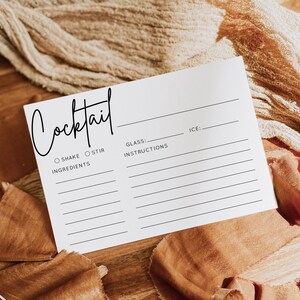 Cocktail
GLASS: ICE:
SHAKE STIR
INGREDIENTS INSTRUCTIONS